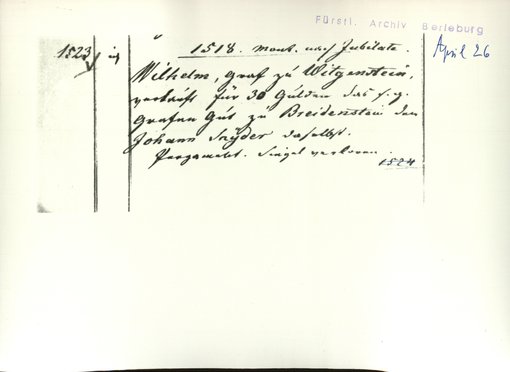 Fürstl. Archiv Berleburg
April 26
1523
1518. mont. nach Jubilate.
Wilhelm, Graf zu Witgenstein,
verkauft für 30 Gulden das s. g.
Grafen Gut zu Breidenstein dem
Johann Snyder daselbst.
Pergament. Siegel verloren.
1524